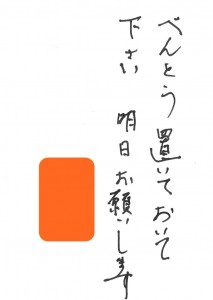 べんとう置いておいて
下さい 明日お願いします